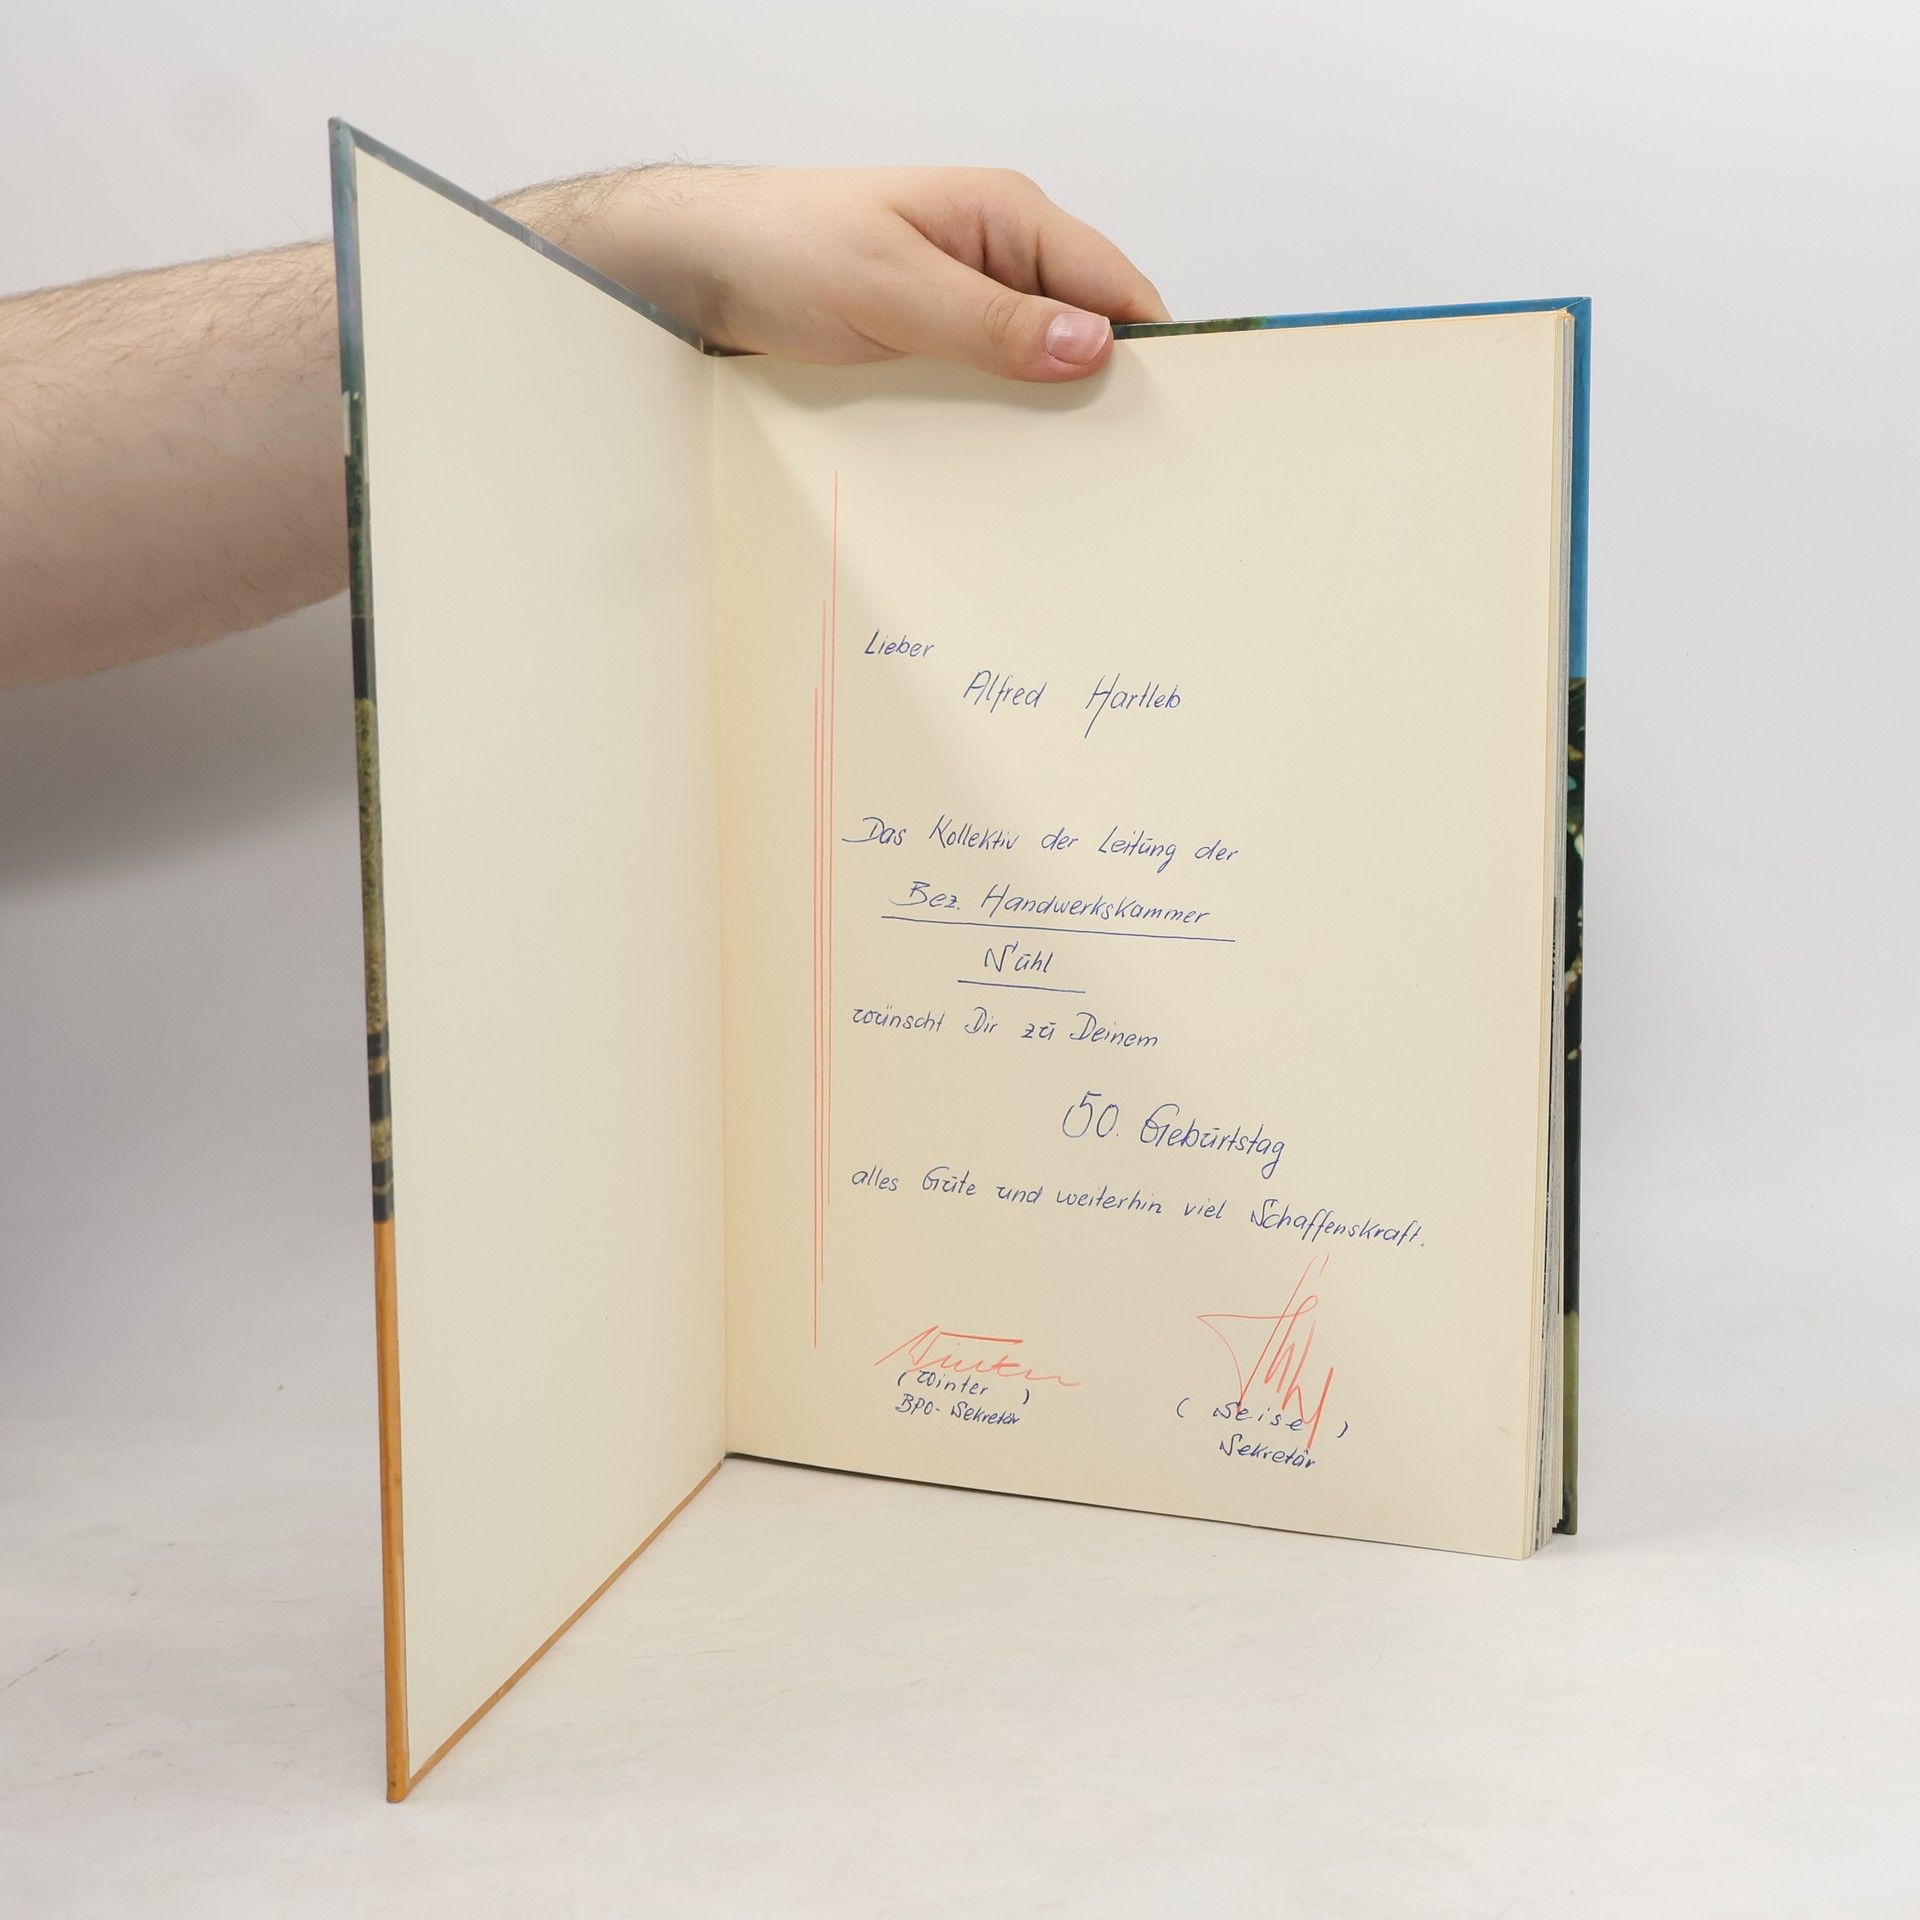 Lieber
Alfred Hartleb
Das Kollektiv der Leitung der
Bez. Handwerkskammer
Suhl
wünscht Dir zu Deinem
50. Geburtstag
alles Gute und weiterhin viel Schaffenskraft.
Winter
( Winter )
( Seise )
BPO- Sekretär
Sekretär